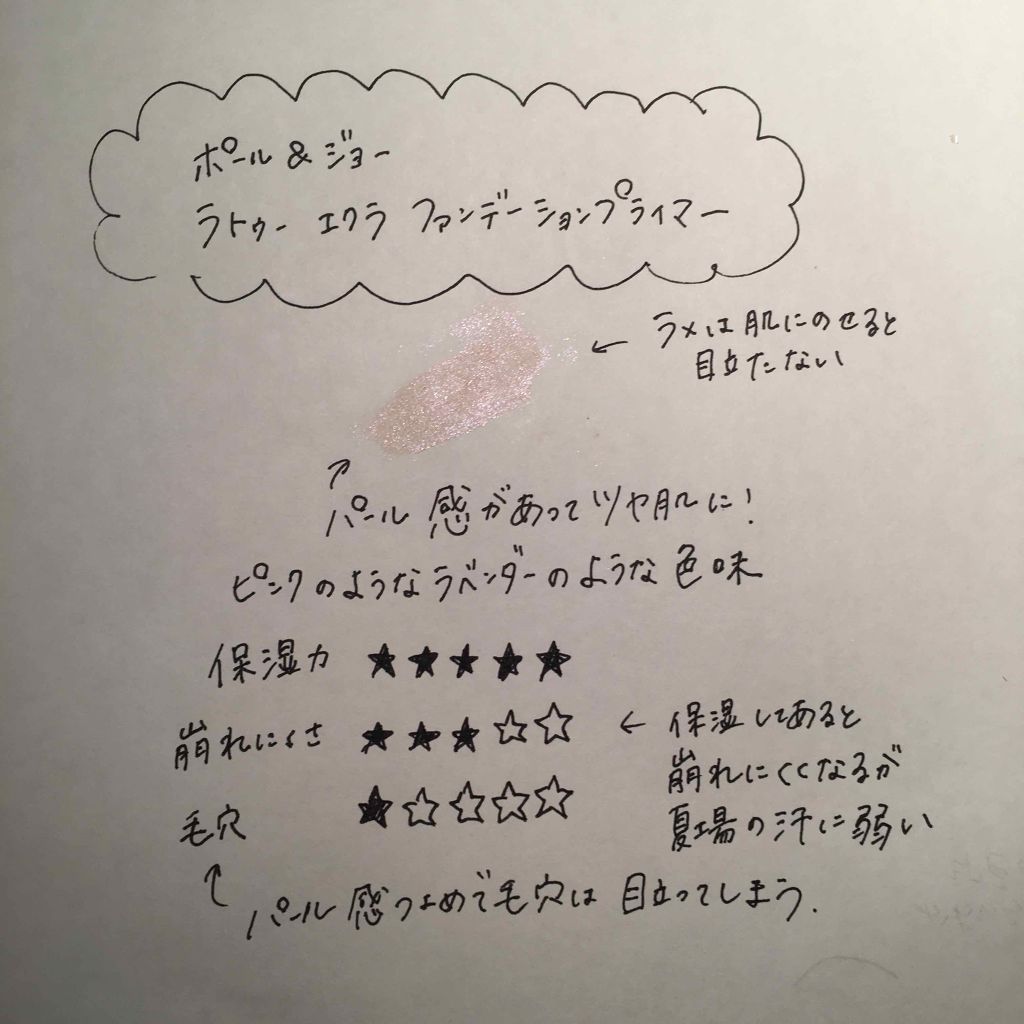 ポール&ジョー
ラトゥー エクラ ファンデーションプライマー
← ラメは肌にのせると
目立たない
↗
パール感があってツヤ肌に!
ピンクのようなラベンダーのような色味
保湿力 ★★★★★
崩れにくさ ★★★☆☆ ← 保湿してあると
崩れにくくなるが
夏場の汗に弱い
毛穴 ★☆☆☆☆
↑ パール感つよめで毛穴は目立ってしまう.